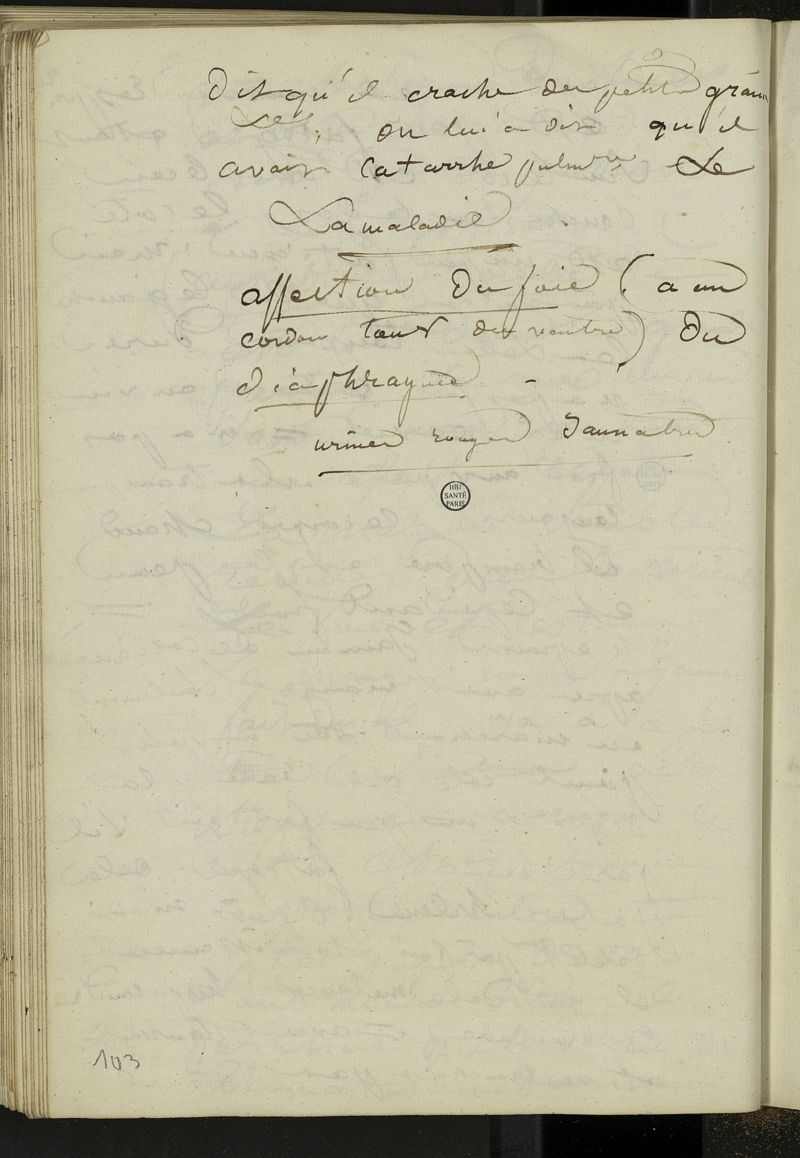 Dit qu'il crache des petits grains
on lui a dit qu'il
avait catarrhe pulmre
La maladie
affection du foie (a un
cordon tout du ventre) du
diaphragme -
urines rouges Jaunatres
BIU
SANTÉ
PARIS
103